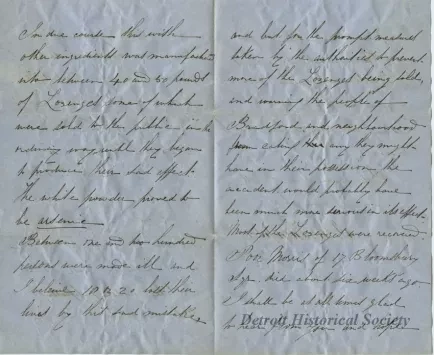 In due course this with
other ingredients was manufactured
into between 40 and 50 pounds
of Lozenges some of which
were sold to the public in the
ordinary way until they began
to produce their sad effect
the white powder proved to
be arsenic
Between one and two hundred
persons were made ill and
I believe 18 or 20 lost their
lives by this sad mistake
and but for the prompt measures
taken by the authorities to prevent
more of the Lozenges being sold,
and warning the people of
Bradford and neighbourhood
from eating any they might
have in their possession, the
accident would probably have
been much more serious in its effect.
Most of the Lozenges were recovered.
Poor Morris of 17 Bloomsbury
Sqr. died about six weeks ago
I shall be at all times glad
to hear from you and
Detroit Historical Society